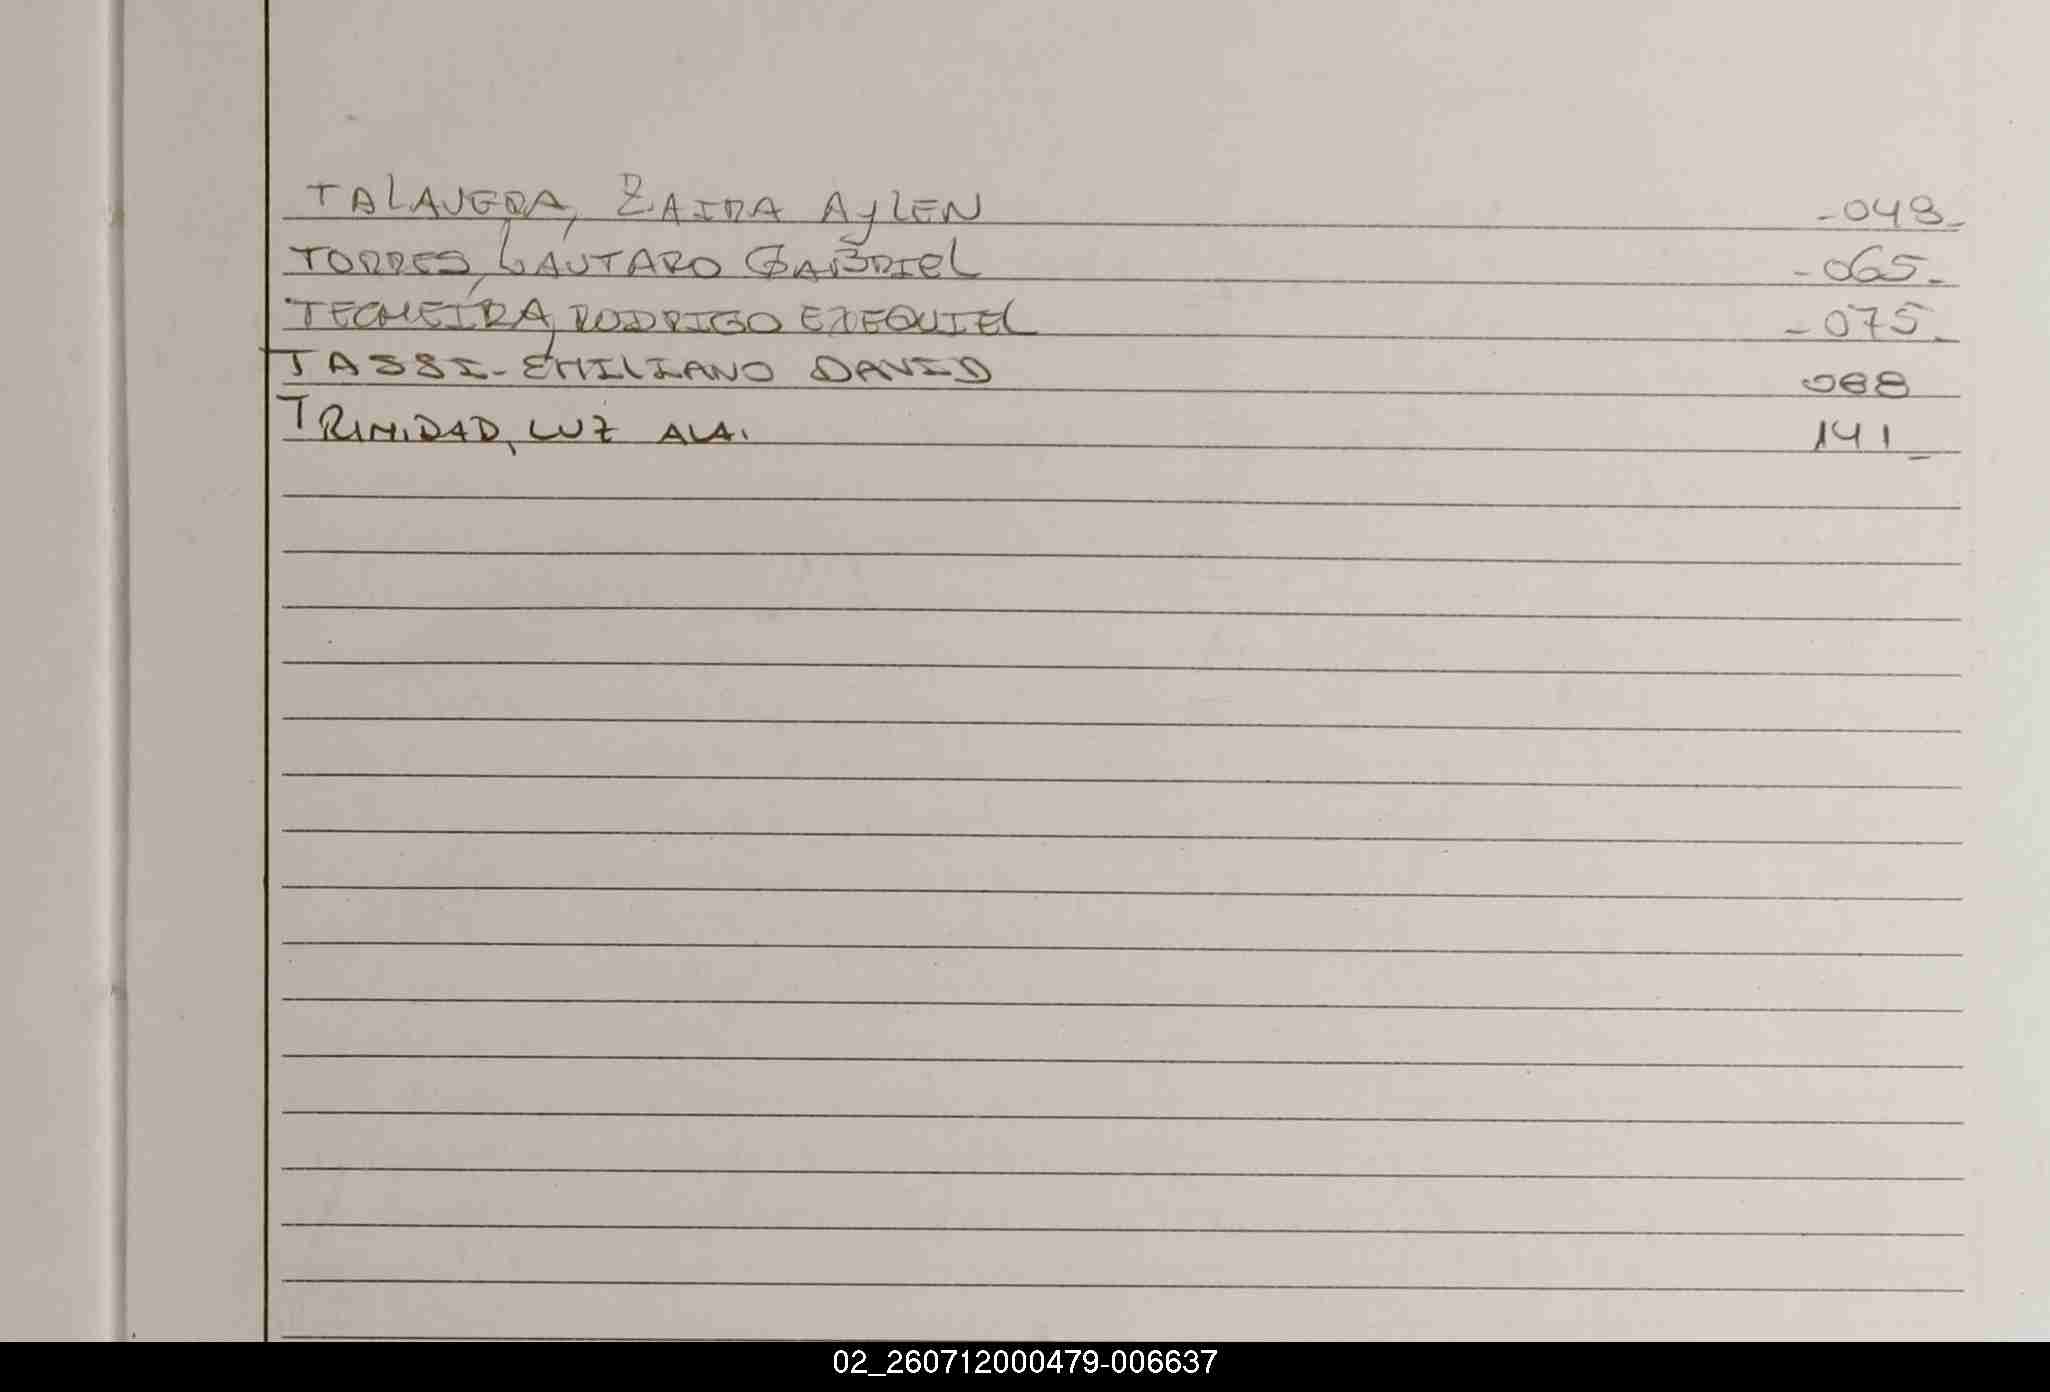 TALAVERA, ZAIRA AYLEN -049-
TORRES, LAUTARO GABRIEL -065-
TECHEIRA, RODRIGO EXEQUIEL -075-
TASSI-EMILIANO DAVID 088
TRINIDAD, LUZ ALA. 141_
02_260712000479-006637